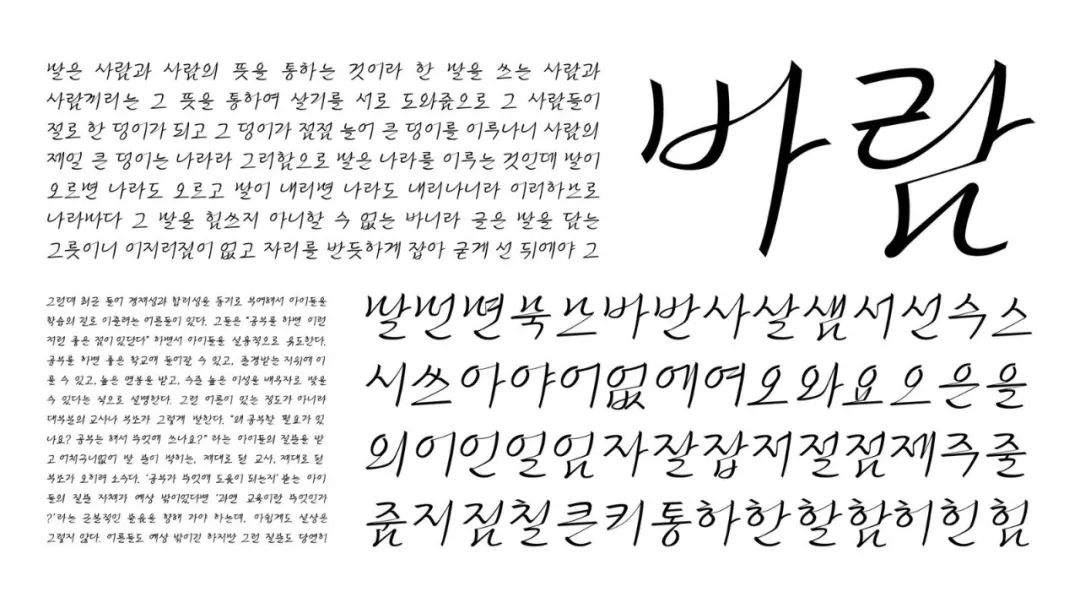 말은 사람과 사람의 뜻을 통하는 것이라 한 말을 쓰는 사람과
사람끼리는 그 뜻을 통하여 살기를 서로 도와줌으로 그 사람들이
절로 한 덩이가 되고 그 덩이가 점점 늘어 큰 덩이를 이루나니 사람의
제일 큰 덩이는 나라라 그러함으로 말은 나라를 이루는 것인데 말이
오르면 나라도 오르고 말이 내리면 나라도 내리나니라 이러하므로
나라마다 그 말을 힘쓰지 아니할 수 없는 바니라 글은 말을 담는
그릇이니 이지러짐이 없고 자리를 반듯하게 잡아 굳게 선 뒤에야 그
바람
그런데 최근 들어 경제성과 합리성을 동기로 부여해서 아이들을
학습의 길로 이끌려는 어른들이 있다. 그들은 “공부를 하면 이런
저런 좋은 점이 있단다” 하면서 아이들을 실용적으로 유도한다.
공부를 하면 좋은 학교에 들어갈 수 있고, 존경받는 지위에 이
를 수 있고, 높은 연봉을 받고, 수준 높은 이성을 배우자로 맞을
수 있다는 식으로 설명한다. 그런 어른이 있는 정도가 아니라
대부분의 교사나 부모가 그렇게 말한다. “왜 공부할 필요가 있
나요? 공부는 해서 무엇에 쓰나요?” 라는 아이들의 질문을 받
고 어처구니없어 말 문이 막히는, 제대로 된 교사, 제대로 된
부모가 오히려 소수다. ‘공부가 무엇에 도움이 되는지’ 묻는 아이
들의 질문 자체가 예상 밖이었다면 ‘과연 교육이란 무엇인가
?’라는 근본적인 물음을 향해 가야 하는데, 아쉽게도 실상은
그렇지 않다. 어른들도 예상 밖이긴 하지만 그런 질문도 당연히
말먼면묵므바반사살샘서선수스
시쓰아야어없에여오와요으은을
의이인일임자잘잡저절점제주줄
줌지짐칠큰키통하한할함히힌힘